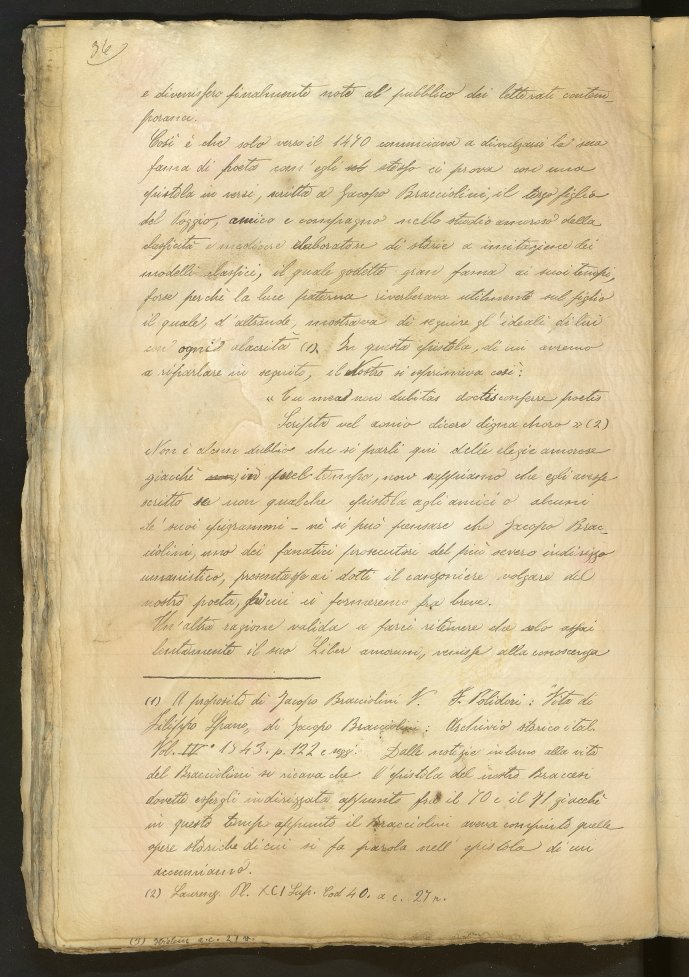 36
e divenissero finalmente note al pubblico dei letterati contem-
poranei.
Così è che solo verso il 1470 cominciava a divulgarsi la sua
fama di poeta com'egli stesso ci prova con una
epistola in versi, scritta a Jacopo Bracciolini, il terzo figlio
del Poggio, amico e compagno nello studio amoroso della
classicità e mediocre elaboratore di storie a imitazione dei
modelli classici, il quale godette gran fama ai suoi tempi,
forse perchè la luce paterna riverberava utilmente sul figlio
il quale, d'altronde, mostrava di seguire gl'ideali di lui
con ogni alacrità (1). In questa epistola, di cui avremo
a riparlare in seguito, il Nostro si esprimeva così:
« Tu mea non dubitas doctis conferre poetis
Scripta vel aonio dicere digna choro » (2)
Non è alcun dubbio che si parli qui delle elegie amorose
giacchè in quel tempo, non sappiamo che egli avesse
scritto se non qualche epistola agli amici o alcuni
de' suoi epigrammi - nè si può pensare che Jacopo Brac-
ciolini, uno dei fanatici prosecutori del più severo indirizzo
umanistico, presentasse ai dotti il canzoniere volgare del
nostro poeta, di cui ci fermeremo fra breve.
Un'altra ragione valida a farci ritenere che solo assai
lentamente il suo Liber amorum, venisse alla conoscenza
(1) A proposito di Jacopo Bracciolini V. F. Polidori: "Vita di
Filippo Spano, di Jacopo Bracciolini: Archivio storico ital.
Vol. IV° 1843. p. 122 e segg. Dalle notizie intorno alla vita
del Bracciolini si ricava che l'epistola del nostro Braccesi
dovette essergli indirizzata appunto fra il 70 e il 71 giacchè
in questo tempo appunto il Bracciolini aveva compiuto quelle
opere storiche di cui si fa parola nell'epistola di cui
accenniamo.
(2) Laurenz. Pl. XCI Sup. Cod 40. a c. 27 r.
(3) Ibidem a.c. 27 v.